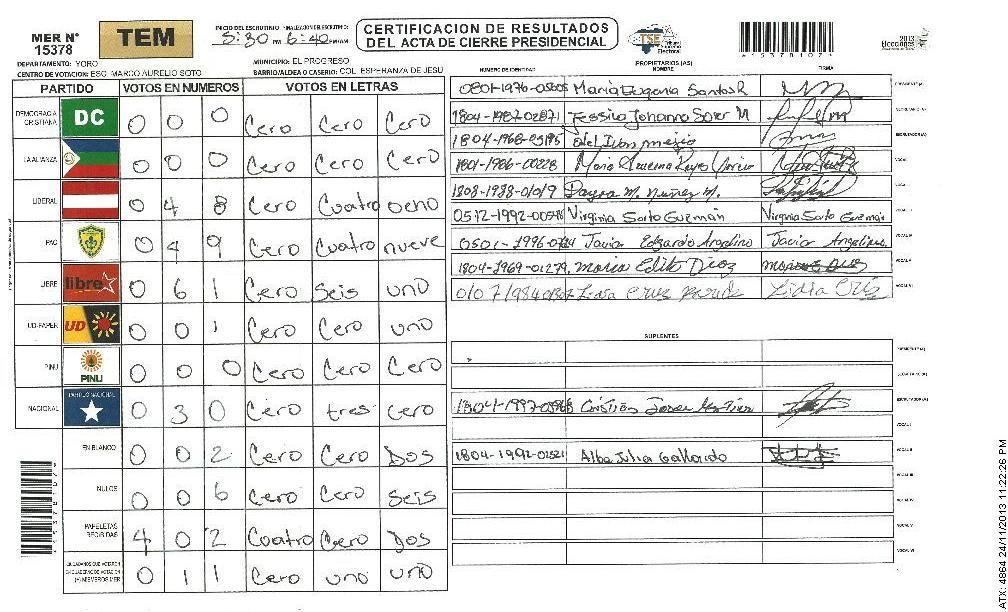 MER N° 15378
TEM
INICIO DEL ESCRUTINIO: 5:30 PM FINALIZACION DEL ESCRUTINIO: 6:40 PM/AM
CERTIFICACION DE RESULTADOS
DEL ACTA DE CIERRE PRESIDENCIAL
TSE Tribunal Supremo Electoral
153781071
2013
Elecciones
DEPARTAMENTO: YORO
MUNICIPIO: EL PROGRESO
CENTRO DE VOTACION: ESC. MARCO AURELIO SOTO
BARRIO/ALDEA O CASERIO: COL. ESPERANZA DE JESU
PARTIDO VOTOS EN NUMEROS VOTOS EN LETRAS
DEMOCRACIA CRISTIANA DC 0 0 0 Cero Cero Cero
LA ALIANZA 0 0 0 Cero Cero Cero
LIBERAL 0 4 8 Cero Cuatro ocho
PAC 0 4 9 Cero Cuatro nueve
LIBRE libre 0 6 1 Cero Seis uno
UD-FAPER UD 0 0 1 Cero Cero uno
PINU PINU 0 0 0 Cero Cero Cero
NACIONAL PARTIDO NACIONAL 0 3 0 Cero tres cero
EN BLANCO 0 0 2 Cero Cero Dos
NULOS 0 0 6 Cero Cero Seis
PAPELETAS RECIBIDAS 4 0 2 Cuatro Cero Dos
CIUDADANOS QUE VOTARON EN CUADERNO DE VOTACION (+) MIEMBROS MER 0 1 1 Cero uno uno
NUMERO DE IDENTIDAD PROPIETARIOS (AS) NOMBRE FIRMA
Maria Eugenia Santos R PRESIDENTE(A)
1804-1987-02871 Johanna M SECRETARIO(A)
1804-1968-03195 ESCRUTADOR(A)
1801-1986-00228 Maria Reyes VOCAL I
1808-1988-01019 Dayra M. Nuñez M. VOCAL II
0512-1992-00548 Virginia Sarto Guzmán Virginia Sarto Guzmán VOCAL III
Javier Edgardo Angelino Javier Angelino VOCAL IV
1804-1969-01279. maria Edita Diaz VOCAL V
Lidia Cruz Lidia Cruz VOCAL VI
SUPLENTES
PRESIDENTE(A)
SECRETARIO(A)
Cristian Javier ESCRUTADOR(A)
VOCAL I
1804-1992-02521 Alba Julia Gallardo VOCAL II
VOCAL III
VOCAL IV
VOCAL V
VOCAL VI
ATX: 4864 24/11/2013 11:22:26 PM